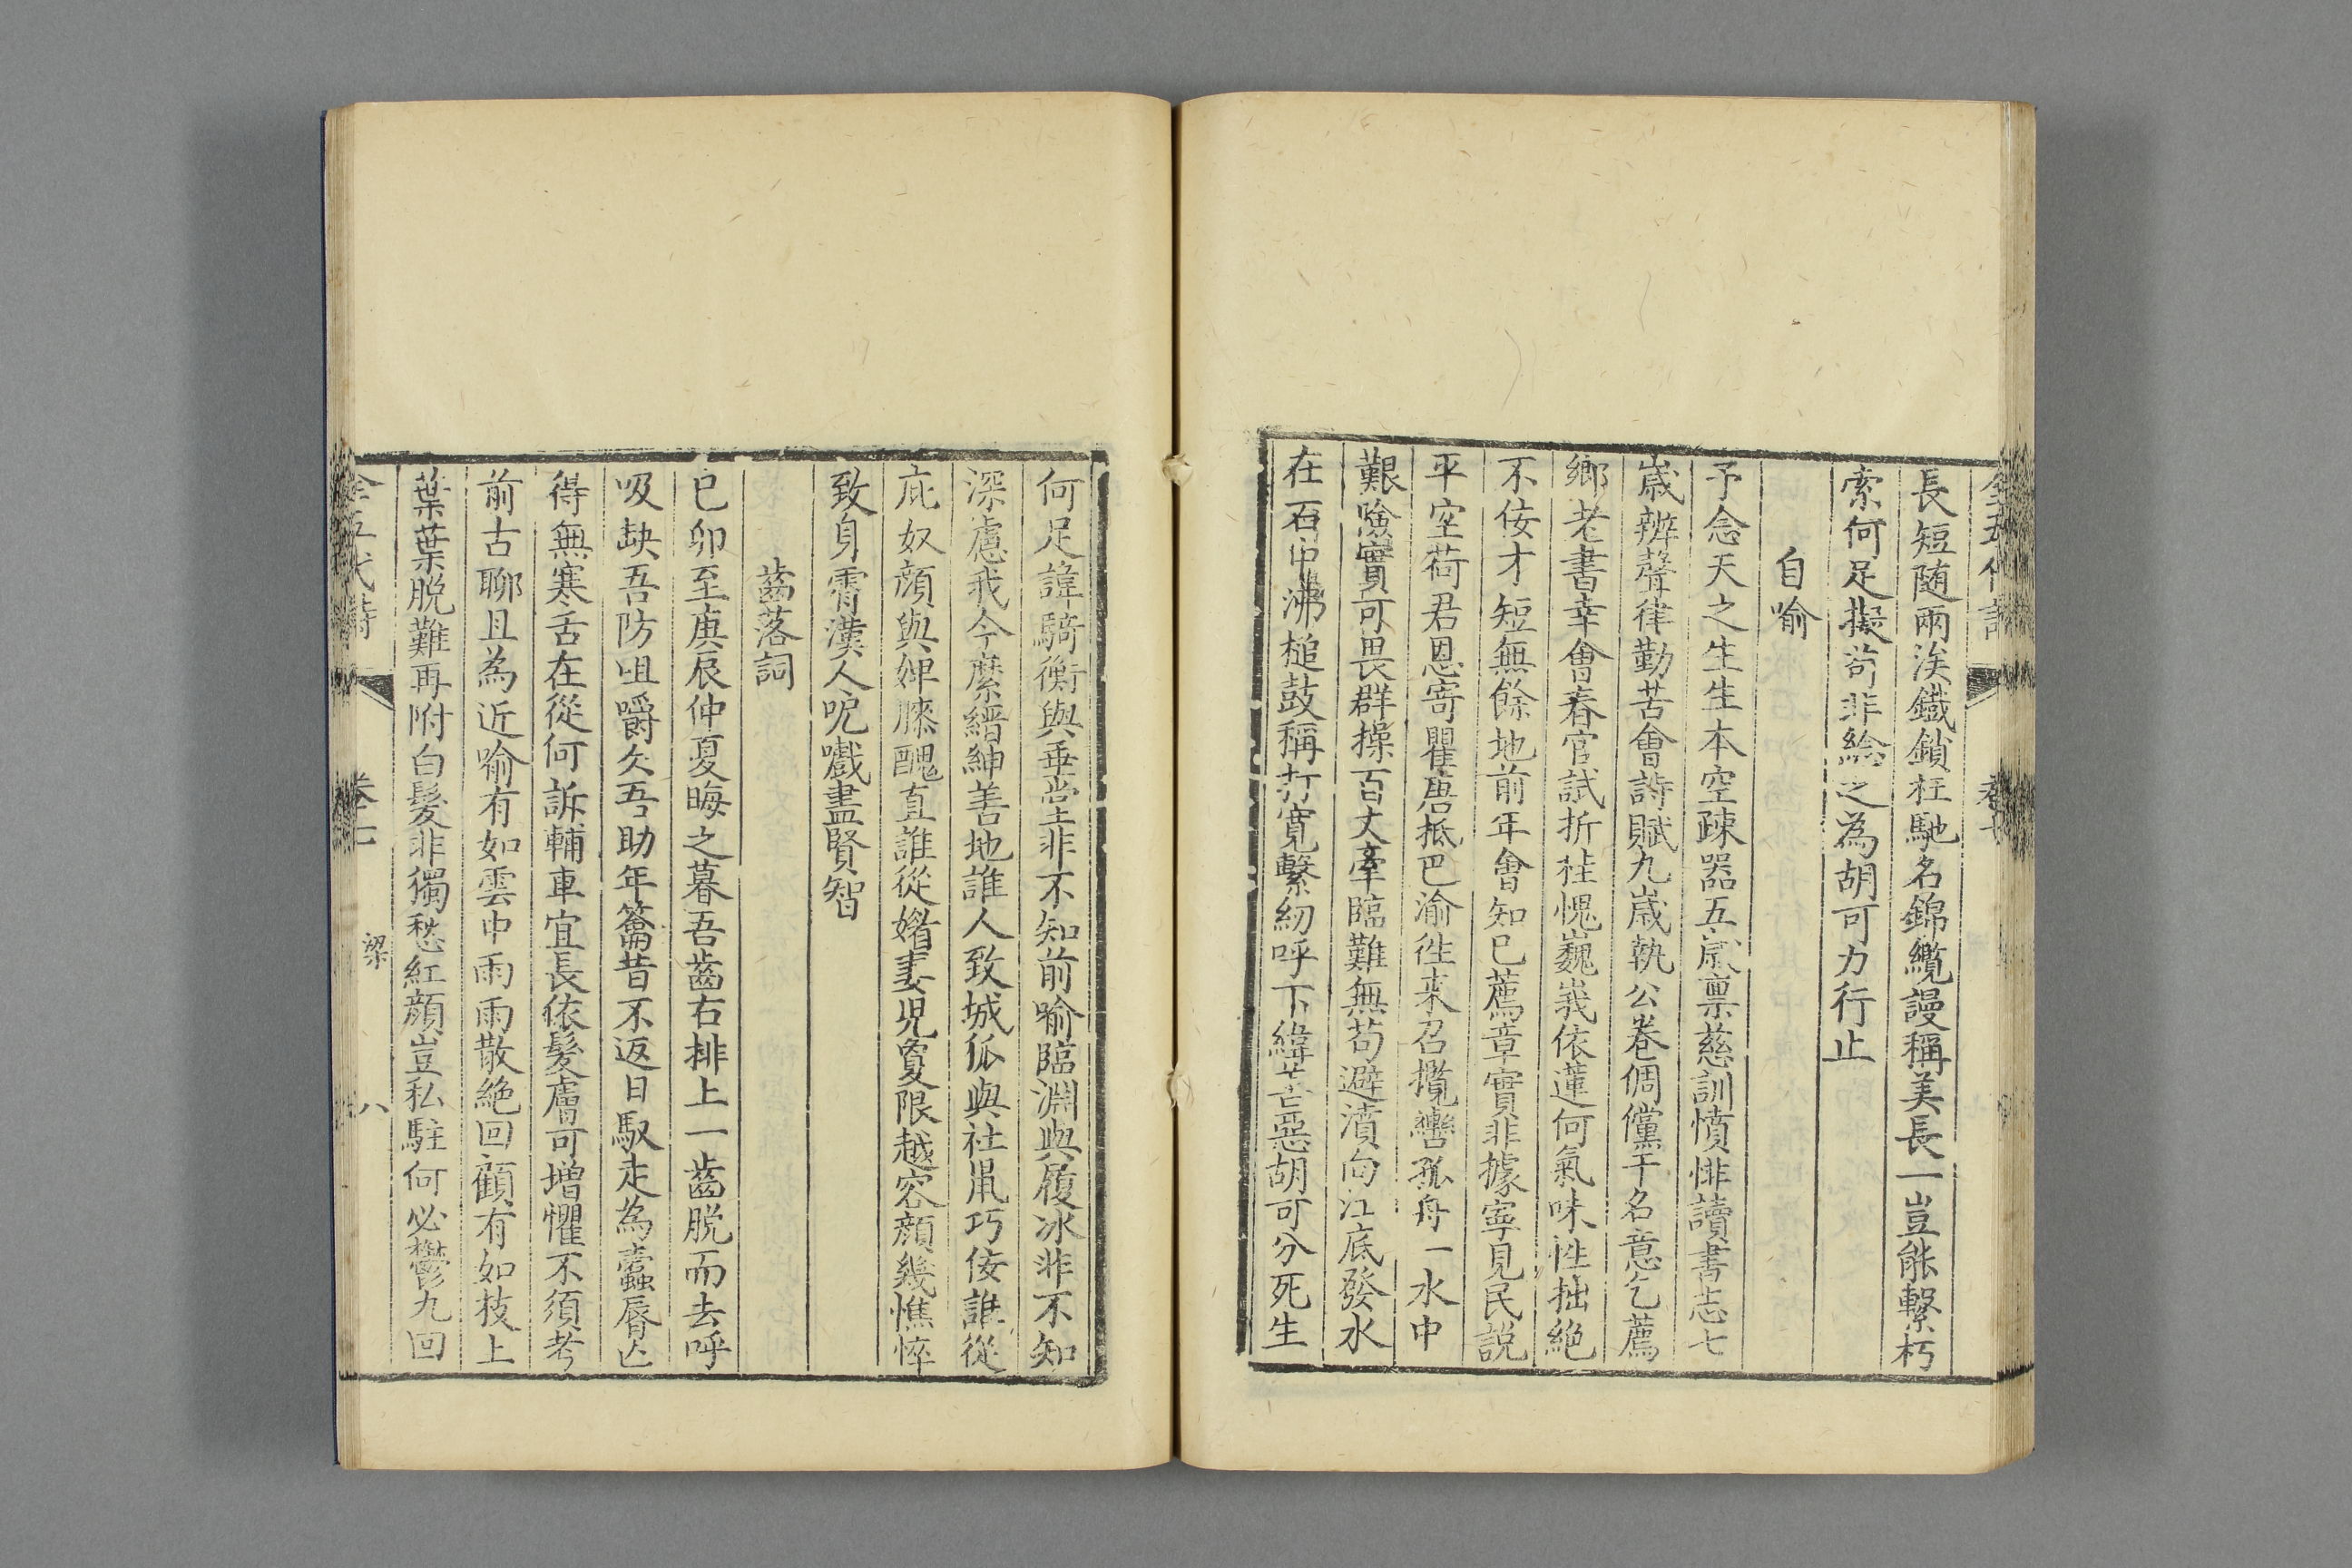 全五代詩 卷七
長短随兩涘鐵鎖枉馳名錦纜謾稱美長一豈能繫朽
索何足擬苟非綸之為胡可力行止
自喻
予念天之生生本空疎器五歲禀慈訓憤悱讀書志七
歲辨聲律勤苦會詩賦九歲執公卷倜儻干名意乞薦
鄉老書幸會春官試折桂愧巍峩依蓮何氣味性拙絶
不佞才短無餘地前年會知已薦章實非據寧見民説
平空荷君恩寄瞿唐抵巴渝徃来召攬轡孤舟一水中
艱險實可畏群操百丈牽臨難無苟避濆向江底發水
在石中沸槌鼓稱打寛繫紉呼下緯善惡胡可分死生
何足諱騎衡與垂堂非不知前喻臨淵與履冰非不知
深慮我今縻縉紳善地誰人致城狐與社鼠巧佞誰從
庇奴顔與婢膝醜直誰從媢妻児夐限越容顔幾憔悴
致身霄漢人呢嚱盡賢智
齒落詞
已卯至庚辰仲夏晦之暮吾齒右排上一齒脱而去呼
吸缺吾防咀嚼欠吾助年籥昔不返日馭走為蠹唇亾
得無寒舌在從何訴輔車宜長依髮膚可增懼不須考
前古聊且為近喻有如雲中雨雨散絶回顧有如枝上
葉葉脱難再附白髪非獨愁紅顔豈私駐何必鬱九回
全五代詩 卷七 梁 八